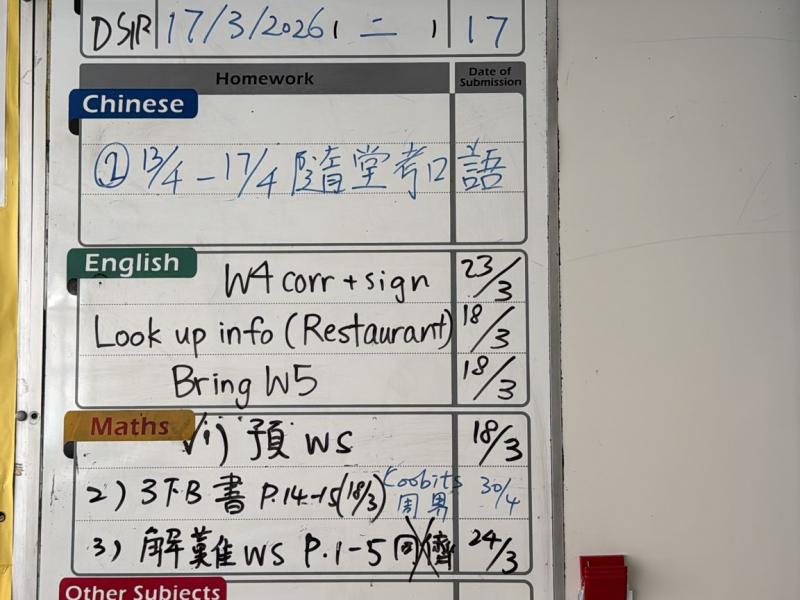 DSIR 17/3/2026 ( 二 ) 17
Homework Date of Submission
Chinese
① 13/4 - 17/4 隨堂考口語
English
W4 corr + sign 23/3
Look up info (Restaurant) 18/3
Bring W5 18/3
Maths
√1) 預 WS 18/3
2) 3下B 書 P.14-15 (18/3) Coobits 周男 30/4
3) 解難 WS P.1-5 24/3
Other Subjects